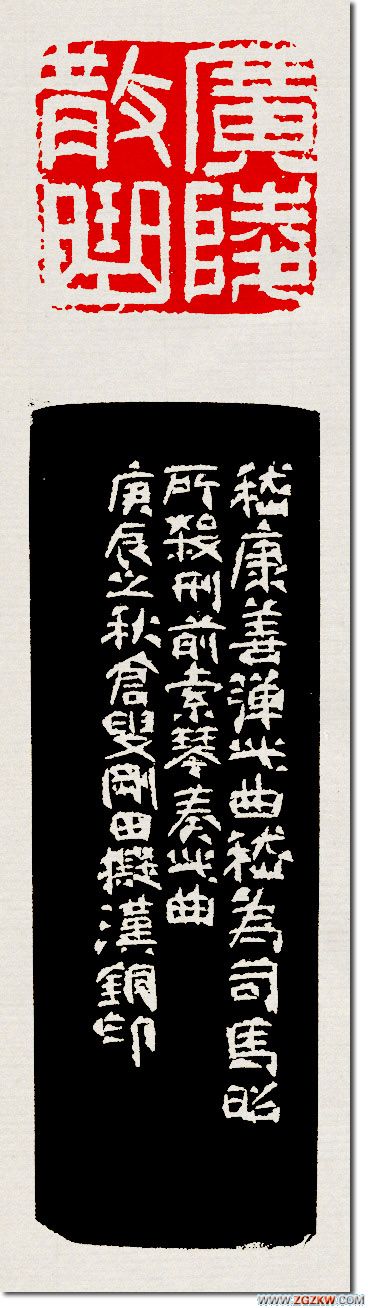 廣陵
散曲
嵇康善彈此曲嵇為司馬昭
所殺刑前索琴奏此曲
庚辰之秋倉叟剛田擬漢銅印
WWW.ZGZKW.COM